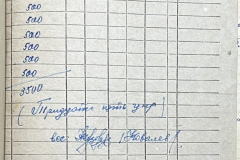 500
500
500
500
500
500
3500
(Тридцать пять
вос: /Ковалев/